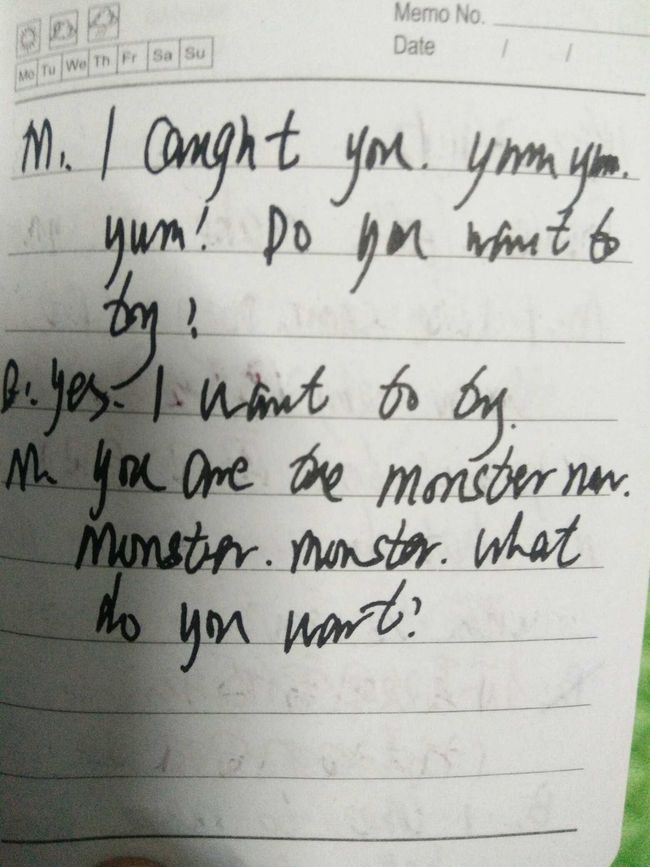 Memo No.
Date / /
Mo Tu We Th Fr Sa Su
M. I Caught you. yum yum.
yum! Do you want to
try?
B. Yes. I want to try.
M. You are the monster now.
Monster. monster. What
do you want?